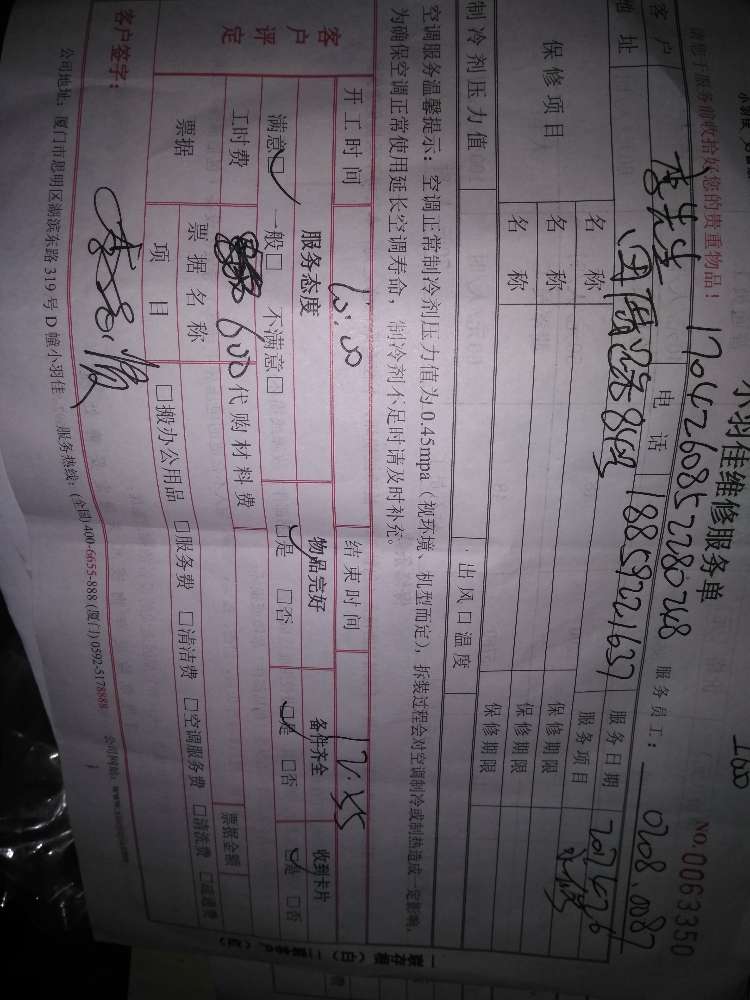 小羽佳维修服务单
1600
请您于服务前收拾好您的贵重物品!
1704260852280248
服务员工: 0208.0087
NO.0063350
客户 李先生 电话 18859221637 服务日期
地址 84号 服务项目
保修项目 名称 保修期限
名称 保修期限
名称 保修期限
制冷剂压力值 出风口温度
空调服务温馨提示:空调正常制冷剂压力值为0.45mpa(视环境、机型而定),拆装过程会对空调制冷或制热造成一定影响,
为确保空调正常使用延长空调寿命,制冷剂不足时请及时补充。
开工时间 10:00 结束时间 12:55
客户评定 服务态度 物品完好 备件齐全 收到卡片
满意□ 一般□ 不满意□ □是 □否 □是 □否 □是 □否
工时费 600 代购材料费
票据 票据名称 票据金额
项目 □搬办公用品 □服务费 □清洁费 □空调服务费 □清洗费
客户签字:
公司地址:厦门市思明区湖滨东路319号D幢小羽佳 服务热线:(全国)400-6655-888 (厦门)0592-5178888 公司网站: